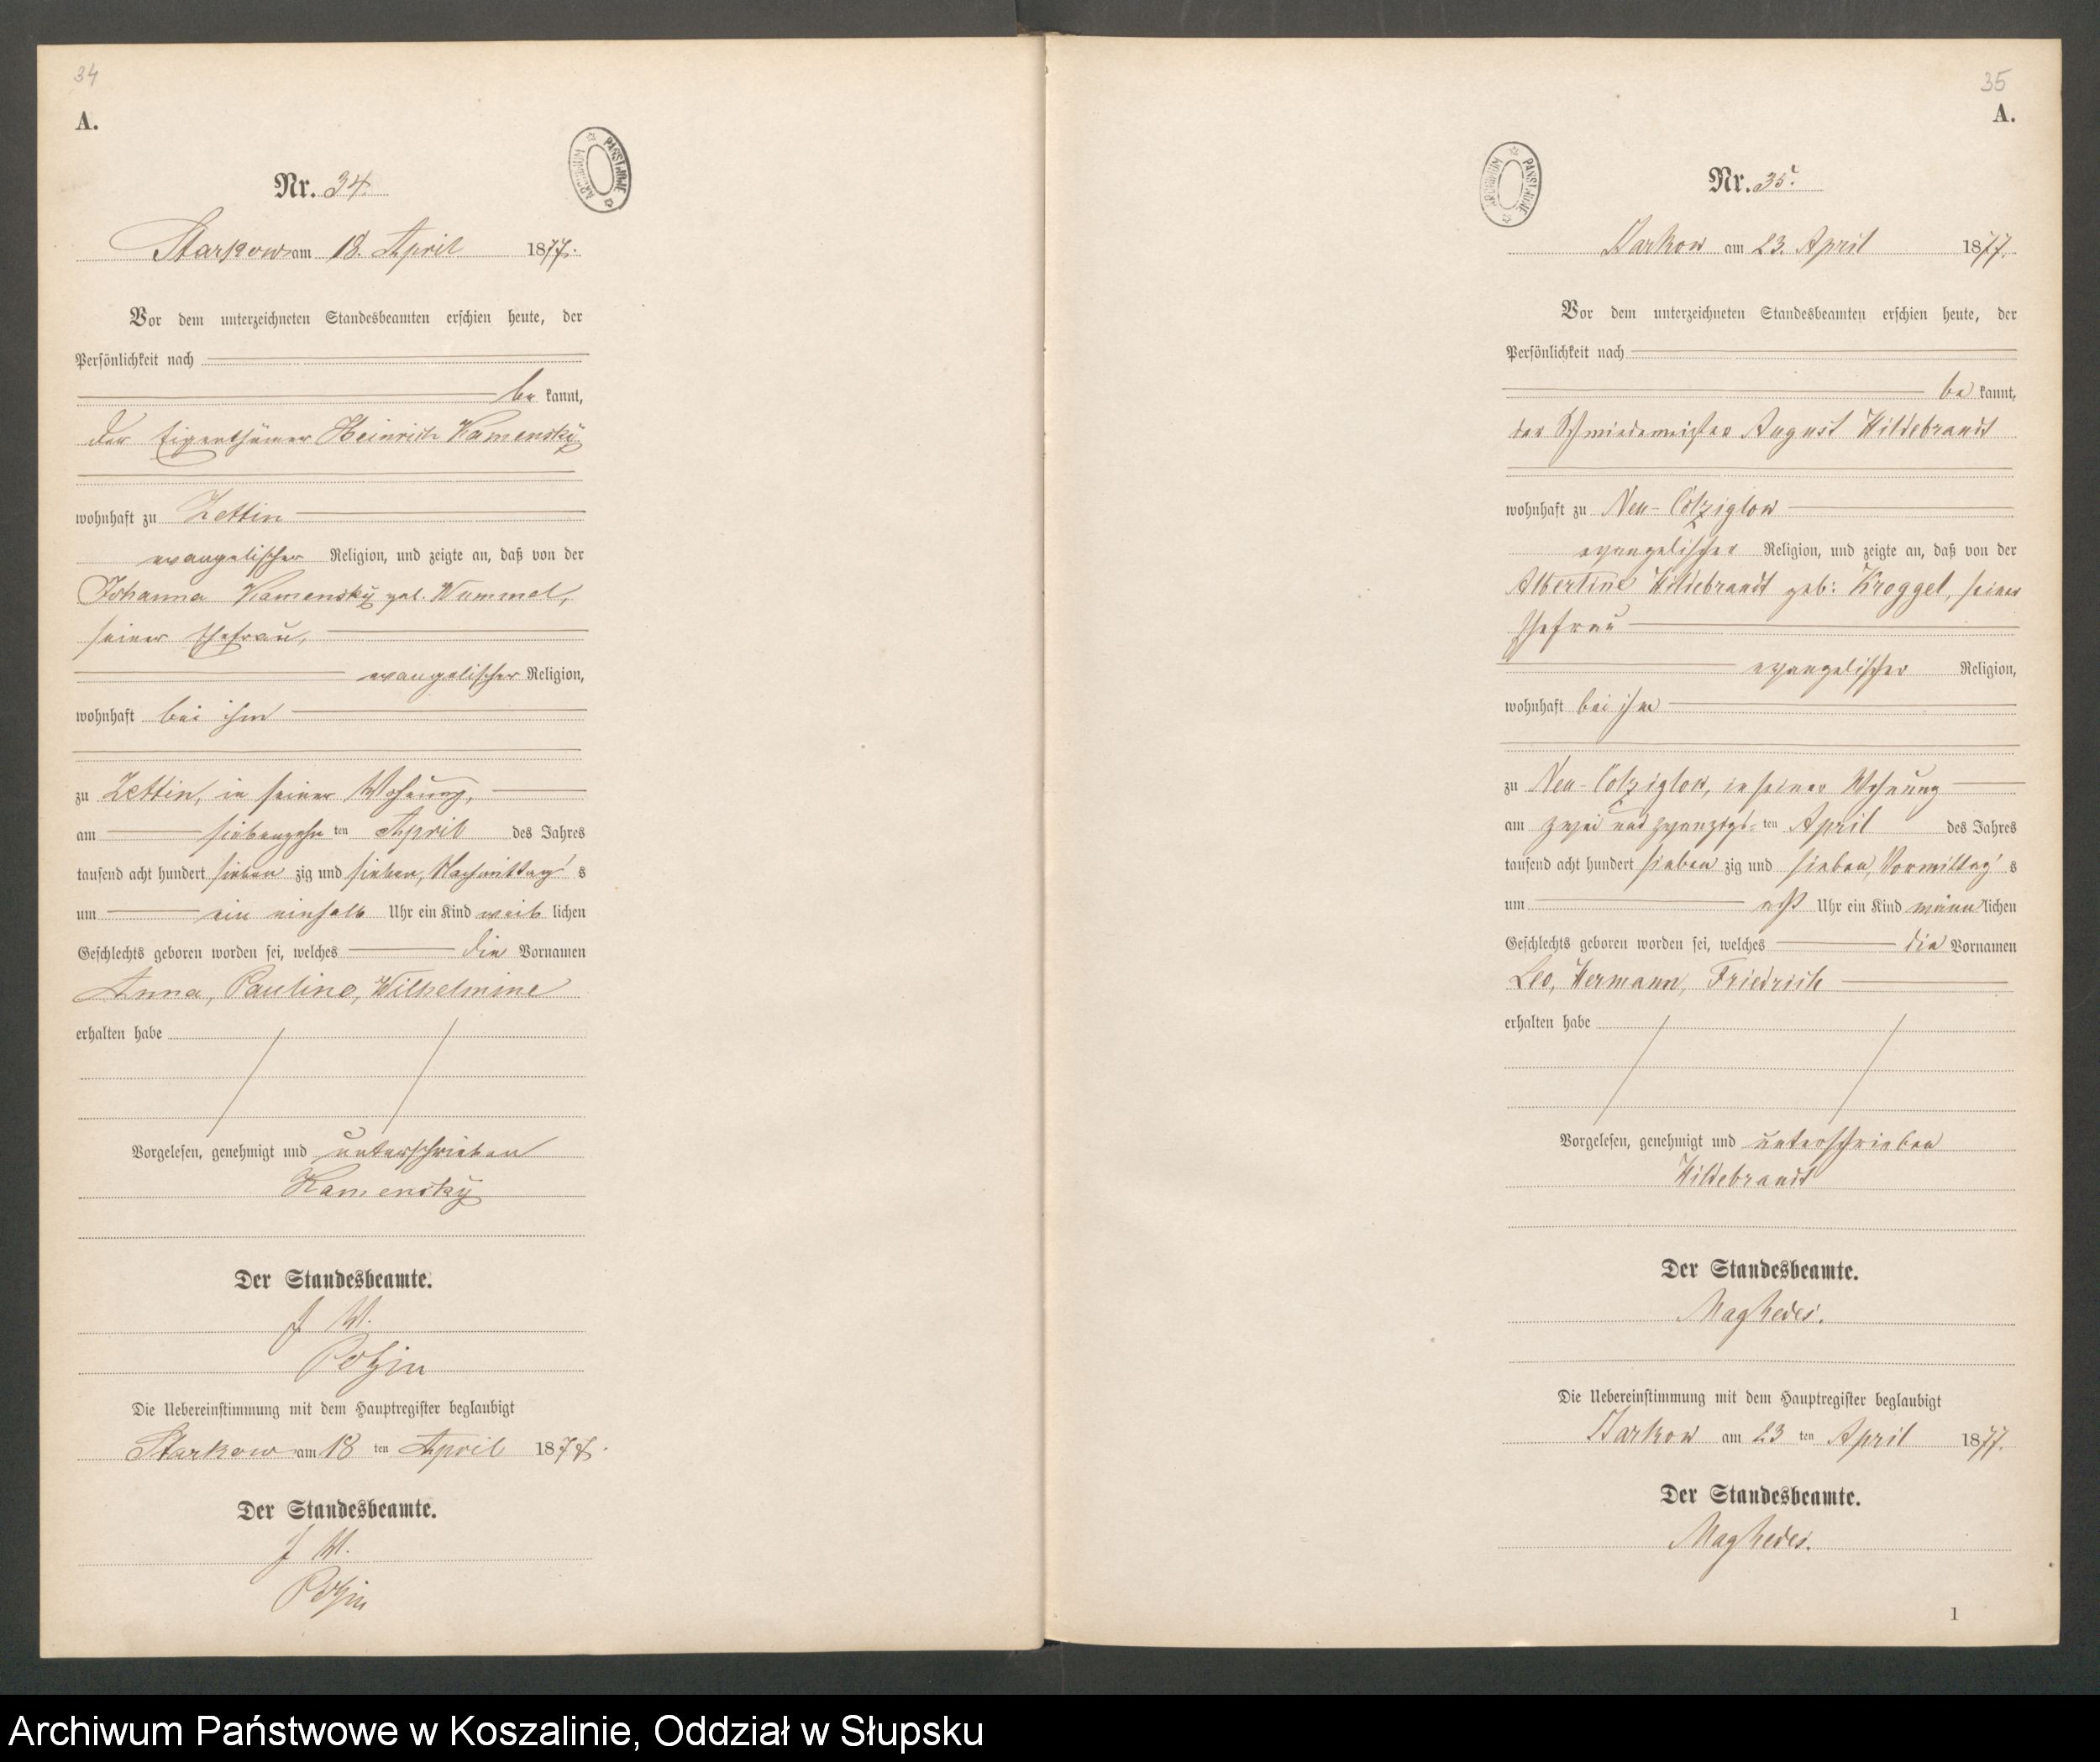 34
A.
ARCHIWUM PAŃSTWOWE
Nr. 34.
Starkow am 18. April 1877.
Vor dem unterzeichneten Standesbeamten erschien heute, der
Persönlichkeit nach
be kannt,
der Eigenthümer Heinrich Kamensky
wohnhaft zu Zettin
evangelischer Religion, und zeigte an, daß von der
Johanna Kamensky geb. Wummel,
seiner Ehefrau,
evangelischer Religion,
wohnhaft bei ihm
zu Zettin, in seiner Wohnung,
am siebenzehn ten April des Jahres
tausend acht hundert sieben zig und sieben, Nachmittag's
um ein einhalb Uhr ein Kind weib lichen
Geschlechts geboren worden sei, welches die Vornamen
Anna, Pauline, Wilhelmine
erhalten habe
Vorgelesen, genehmigt und unterschrieben
Kamensky
Der Standesbeamte.
J. W.
Die Uebereinstimmung mit dem Hauptregister beglaubigt
Starkow am 18 ten April 1877.
Der Standesbeamte.
J. W.
35
A.
ARCHIWUM PAŃSTWOWE
Nr. 35.
Starkow am 23. April 1877.
Vor dem unterzeichneten Standesbeamten erschien heute, der
Persönlichkeit nach
be kannt,
der Schmiedemeister August Hildebrandt
wohnhaft zu Neu-Colziglow
evangelischer Religion, und zeigte an, daß von der
Albertine Hildebrandt geb: Kroggel, seiner
Ehefrau
evangelischer Religion,
wohnhaft bei ihm
zu Neu-Colziglow, in seiner Wohnung
am zwei und zwanzigs- ten April des Jahres
tausend acht hundert sieben zig und sieben, Vormittag's
um acht Uhr ein Kind männ lichen
Geschlechts geboren worden sei, welches die Vornamen
Leo, Hermann, Friedrich
erhalten habe
Vorgelesen, genehmigt und unterschrieben
Hildebrandt
Der Standesbeamte.
Die Uebereinstimmung mit dem Hauptregister beglaubigt
Starkow am 23 ten April 1877.
Der Standesbeamte.
1
Archiwum Państwowe w Koszalinie, Oddział w Słupsku